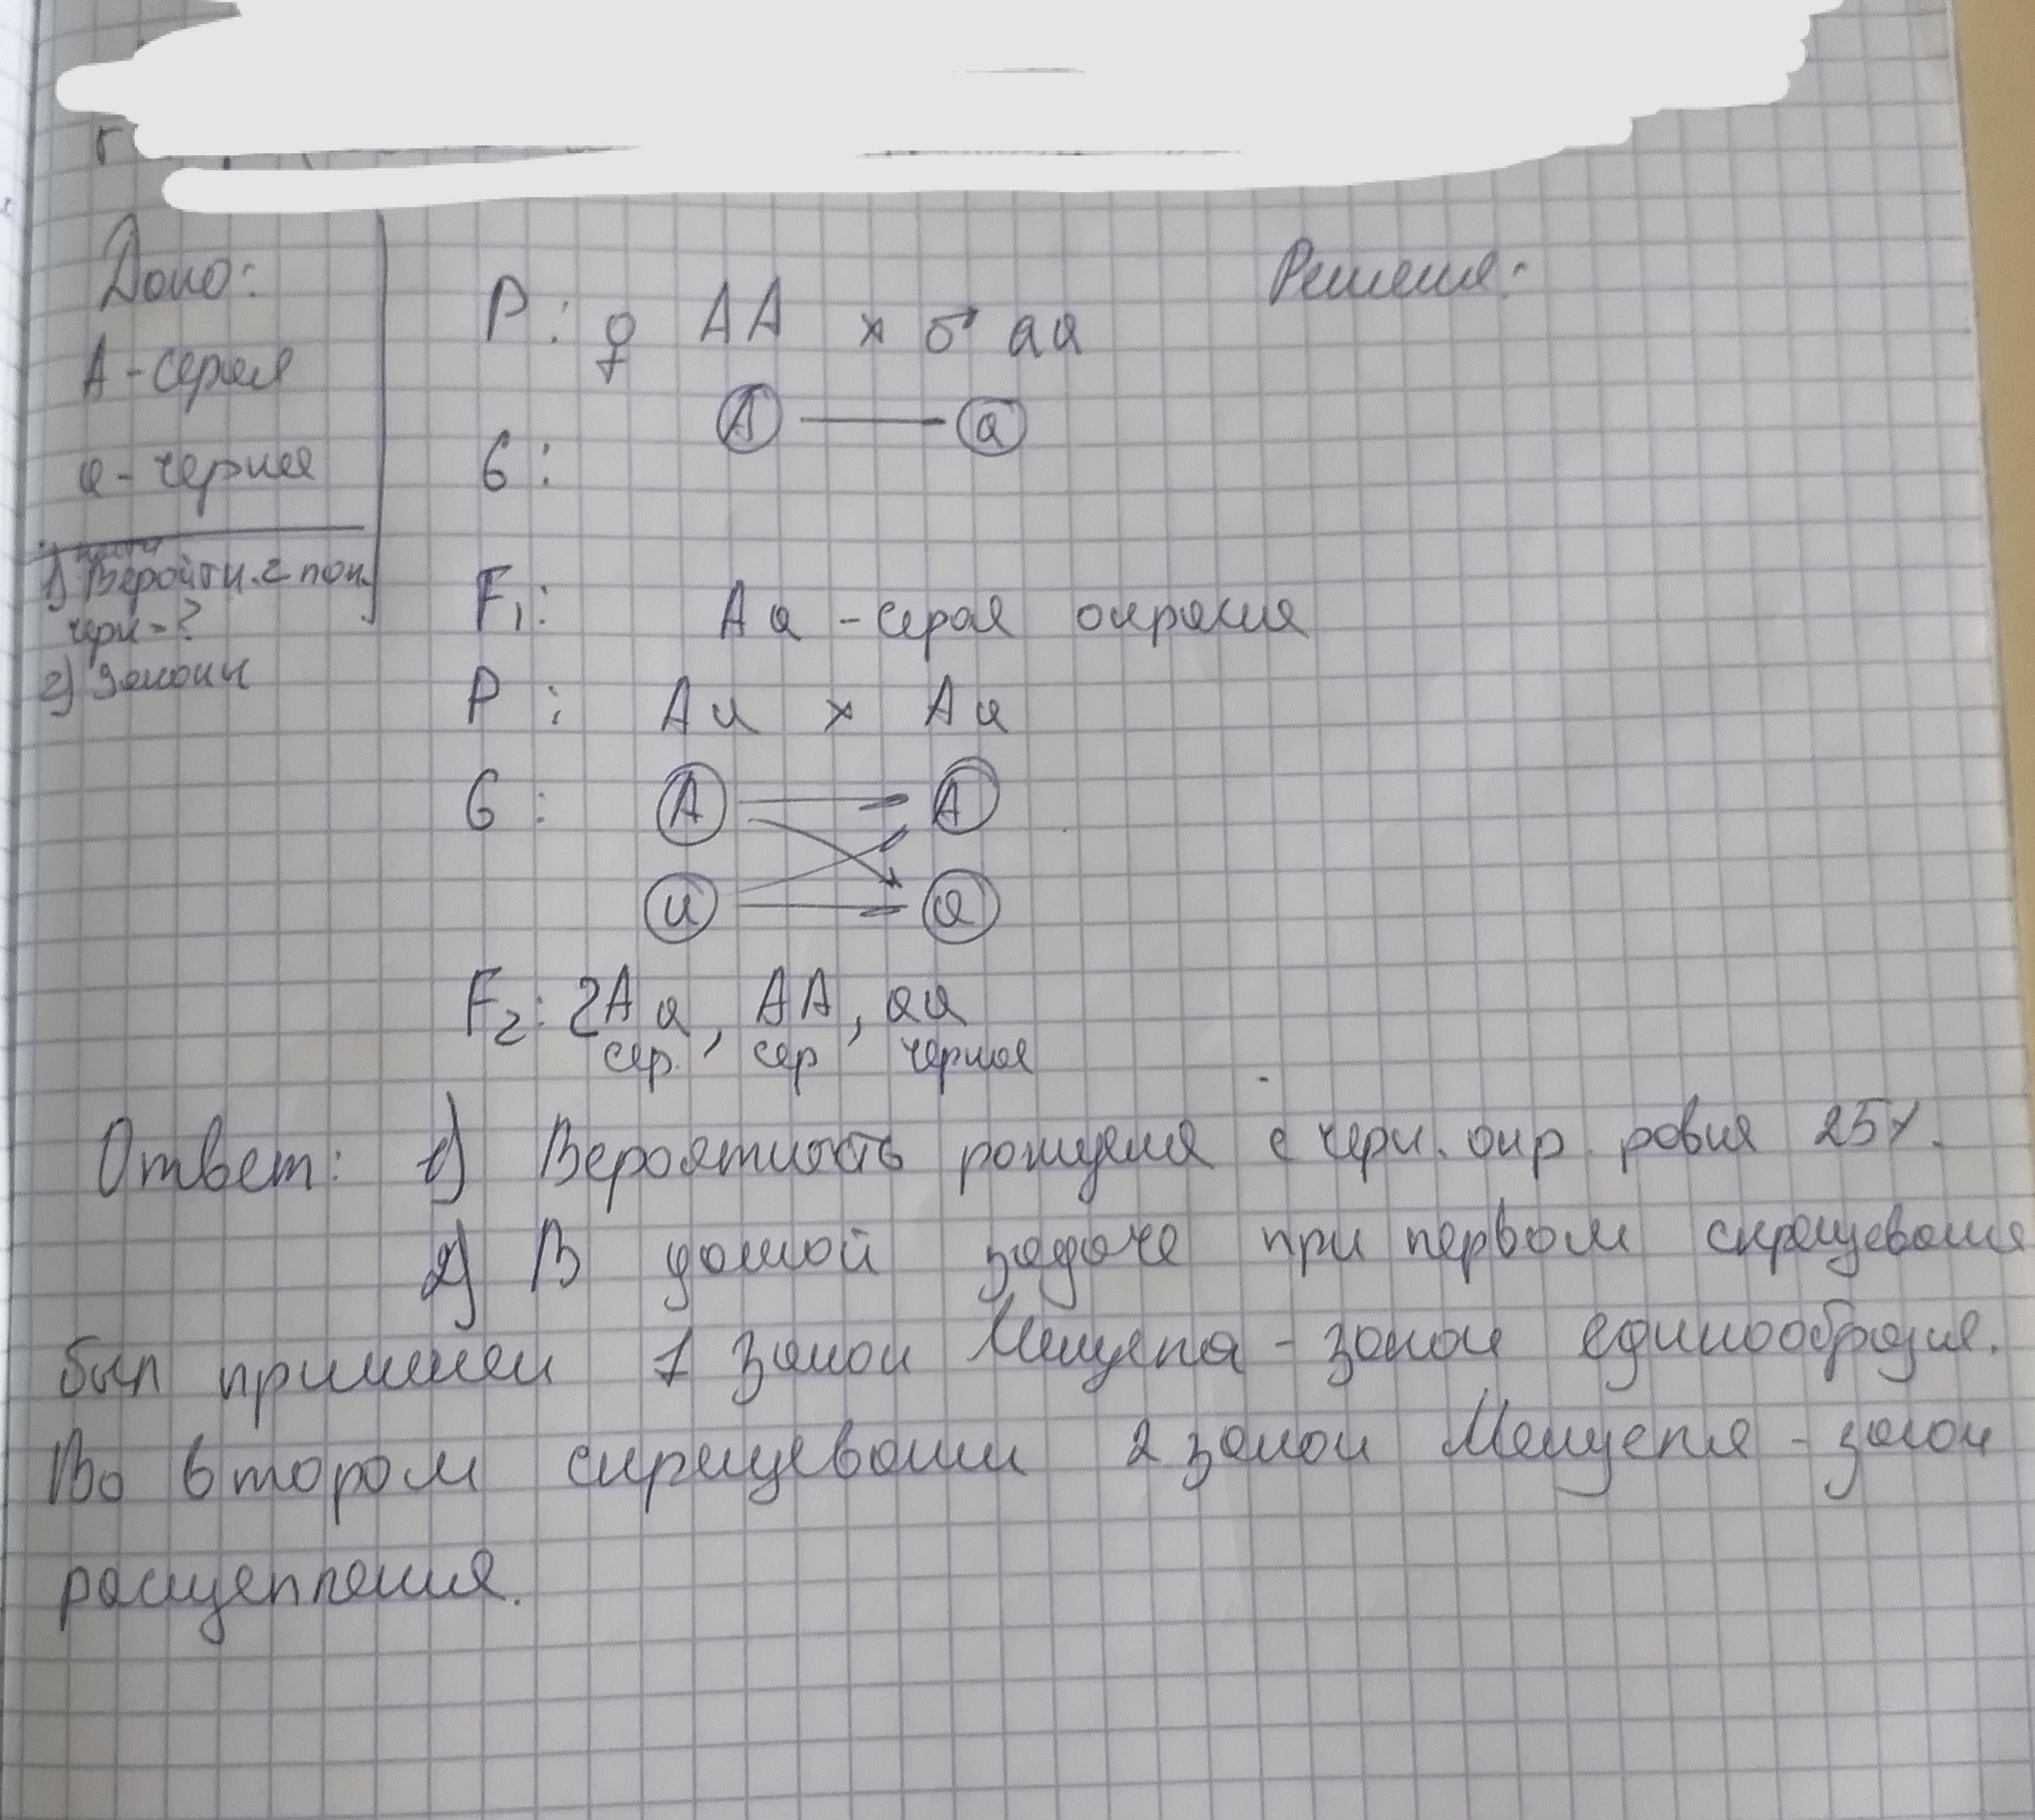 Дано:
Решение:
А - серая
а - черная
1) Вероятн. 2 пок.
черн - ?
2) Законы
P: ♀ AA × ♂ aa
G: A — a
F₁: Aa - серая окраска
P: Aa × Aa
G: A A
a a
F₂: 2Aa, AA, aa
сер., сер черная
Ответ: 1) Вероятность рождения с черн. окр. ровна 25%.
2) В данной задаче при первом скрещевание
был применен 1 закон Менделя - закон единообразия.
Во втором скрещевании 2 закон Менделя - закон
расщепления.